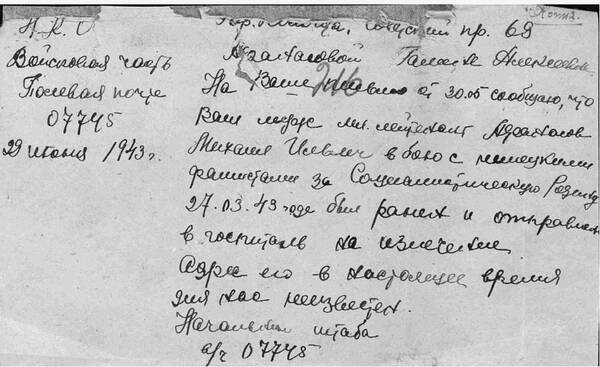 Копия.
Н.К.О
пр. 69
Войсковая часть
Полевая почта
07745
29 июня 1943 г.
Галине Алексеевне
На Ваше от 30.05 сообщаю, что
216
Ваш муж мл. лейтенант
Михаил в бою с немецкими
фашистами за Социалистическую Родину
27.03.43 года был ранен и отправлен
в госпиталь на излечение.
Адрес его в настоящее время
для нас неизвестен.
Начальник штаба
в/ч 07745